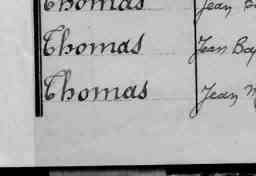 Thomas Jean
Thomas Jean Bap
Thomas Jean M